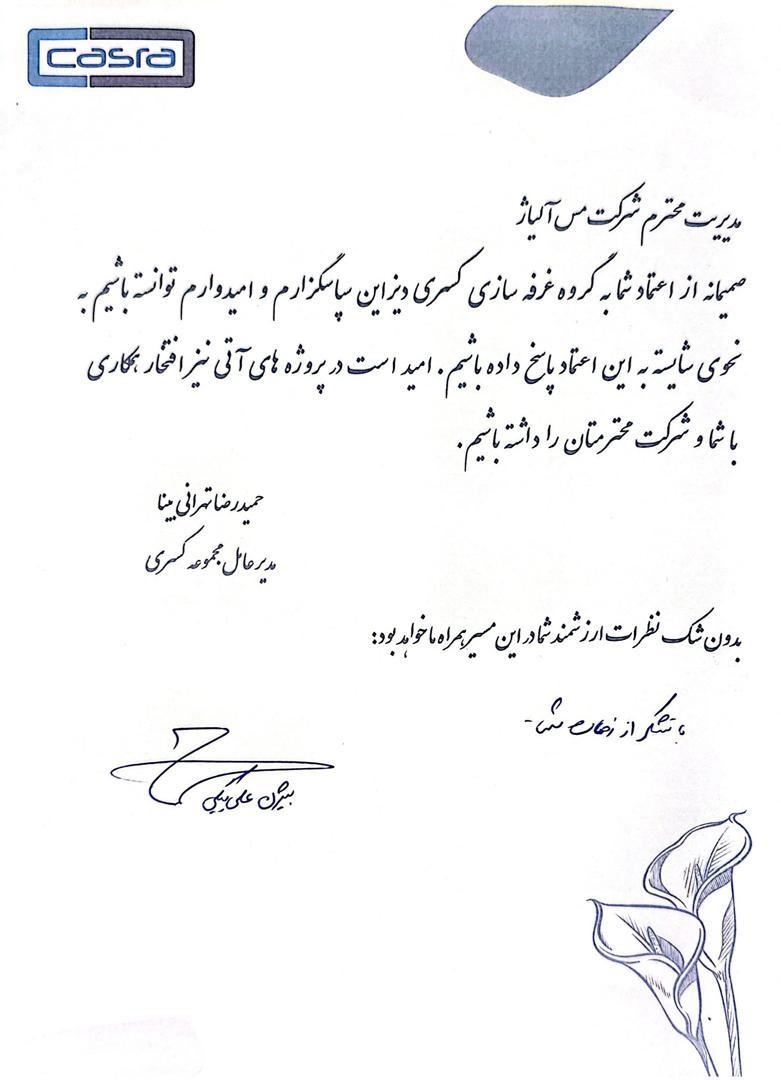 casra
مدیریت محترم شرکت مس آلیاژ
صمیمانه از اعتماد شما به گروه غرفه سازی کسری دیزاین سپاسگزارم و امیدوارم توانسته باشیم به
نحوی شایسته به این اعتماد پاسخ داده باشیم. امید است در پروژه های آتی نیز افتخار همکاری
با شما و شرکت محترمتان را داشته باشیم.
حمیدرضا تهرانی بینا
مدیر عامل مجموعه کسری
بدون شک نظرات ارزشمند شما در این مسیر همراه ما خواهد بود:
با تشکر از زحمات شما -
بیژن علی بیگی